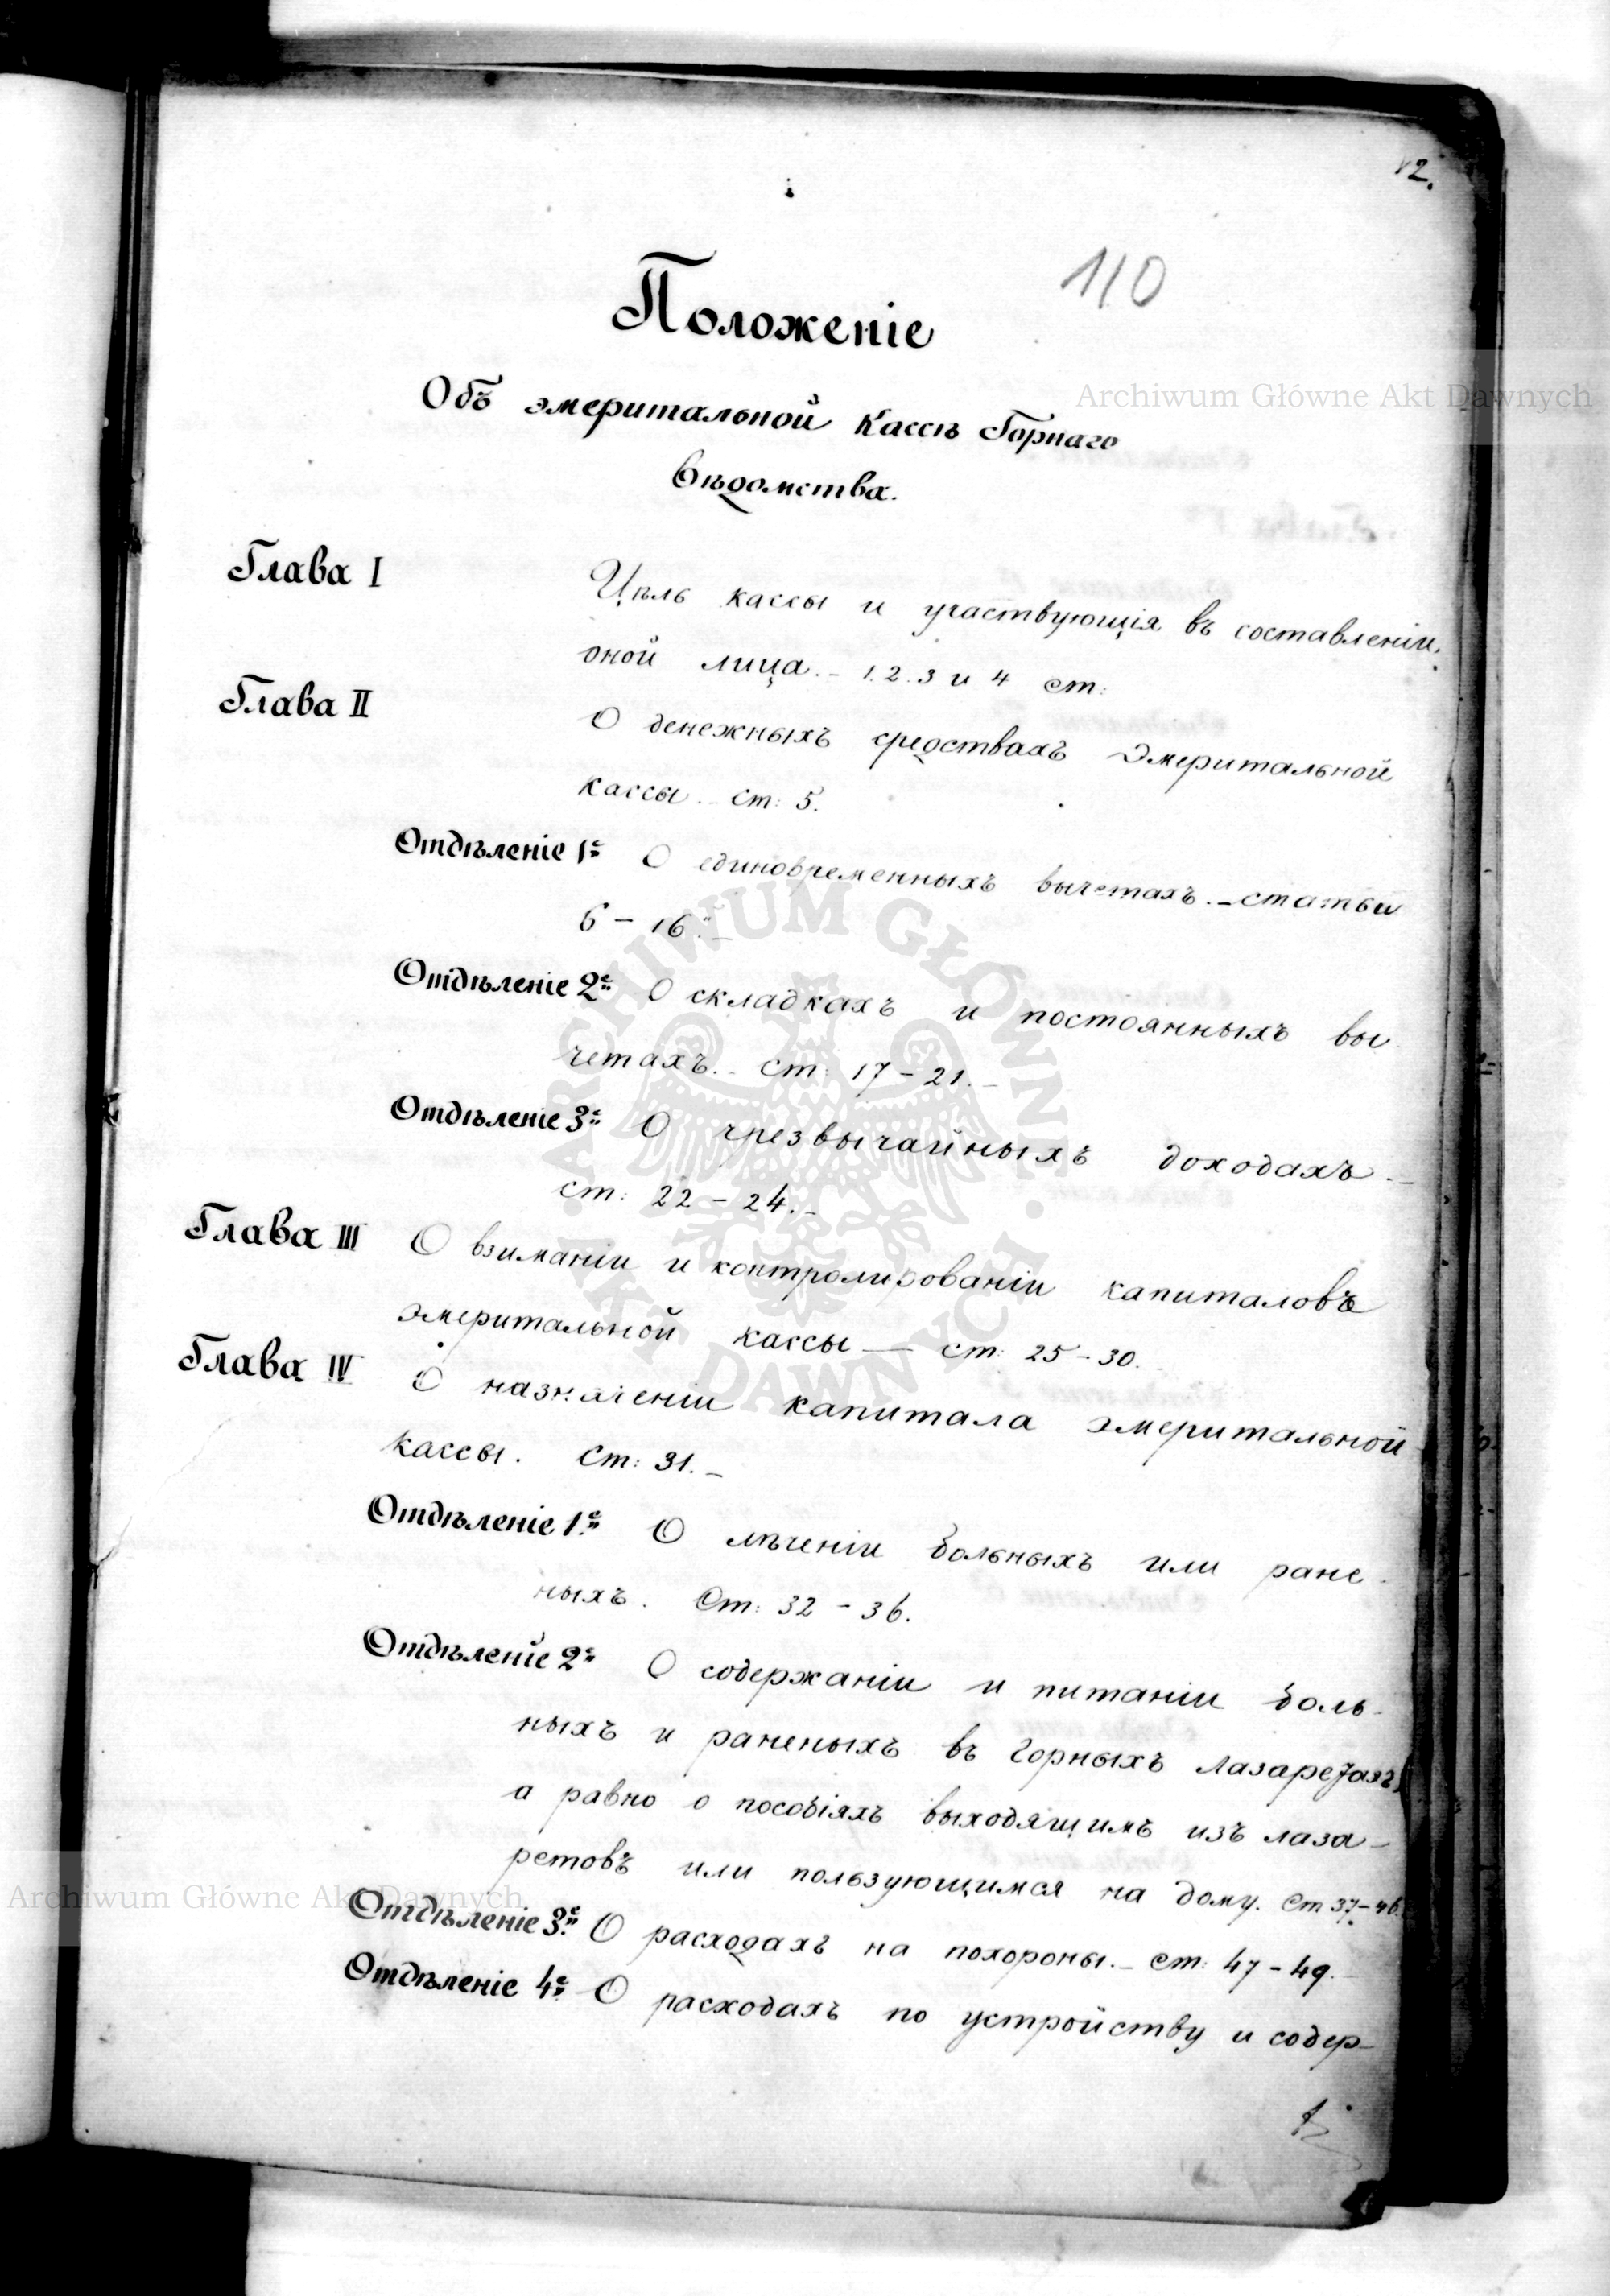 12.
110
Положеніе
Объ эмеритальной Кассѣ Горнаго
Вѣдомства.
Глава I
Цѣль кассы и участвующія въ составленіи
оной лица. – 1. 2. 3 и 4 ст:
Глава II
О денежныхъ средствахъ Эмеритальной
кассы. – ст: 5.
Отдѣленіе 1е О единовременныхъ вычетахъ. – статьи
6 – 16. –
Отдѣленіе 2е О складкахъ и постоянныхъ вы
четахъ. – ст: 17 – 21. –
Отдѣленіе 3е О чрезвычайныхъ доходахъ. –
ст: 22 – 24. –
Глава III О взиманіи и контролированіи капиталовъ
эмеритальной кассы — ст: 25 – 30.
Глава IV О назначеніи капитала эмеритальной
кассы. Ст: 31. –
Отдѣленіе 1е О лѣченіи больныхъ или ране
ныхъ. Ст: 32 – 36.
Отдѣленіе 2е О содержаніи и питаніи боль-
ныхъ и раненыхъ въ горныхъ лазаретахъ
а равно о пособіяхъ выходящимъ изъ лаза-
ретовъ или пользующимся на дому. Ст 37–46.
Отдѣленіе 3е О расходахъ на похороны. – ст: 47 – 49. –
Отдѣленіе 4е О расходахъ по устройству и содер-
Archiwum Główne Akt Dawnych
ARCHIWUM GŁÓWNE AKT DAWNYCH
Archiwum Główne Akt Dawnych